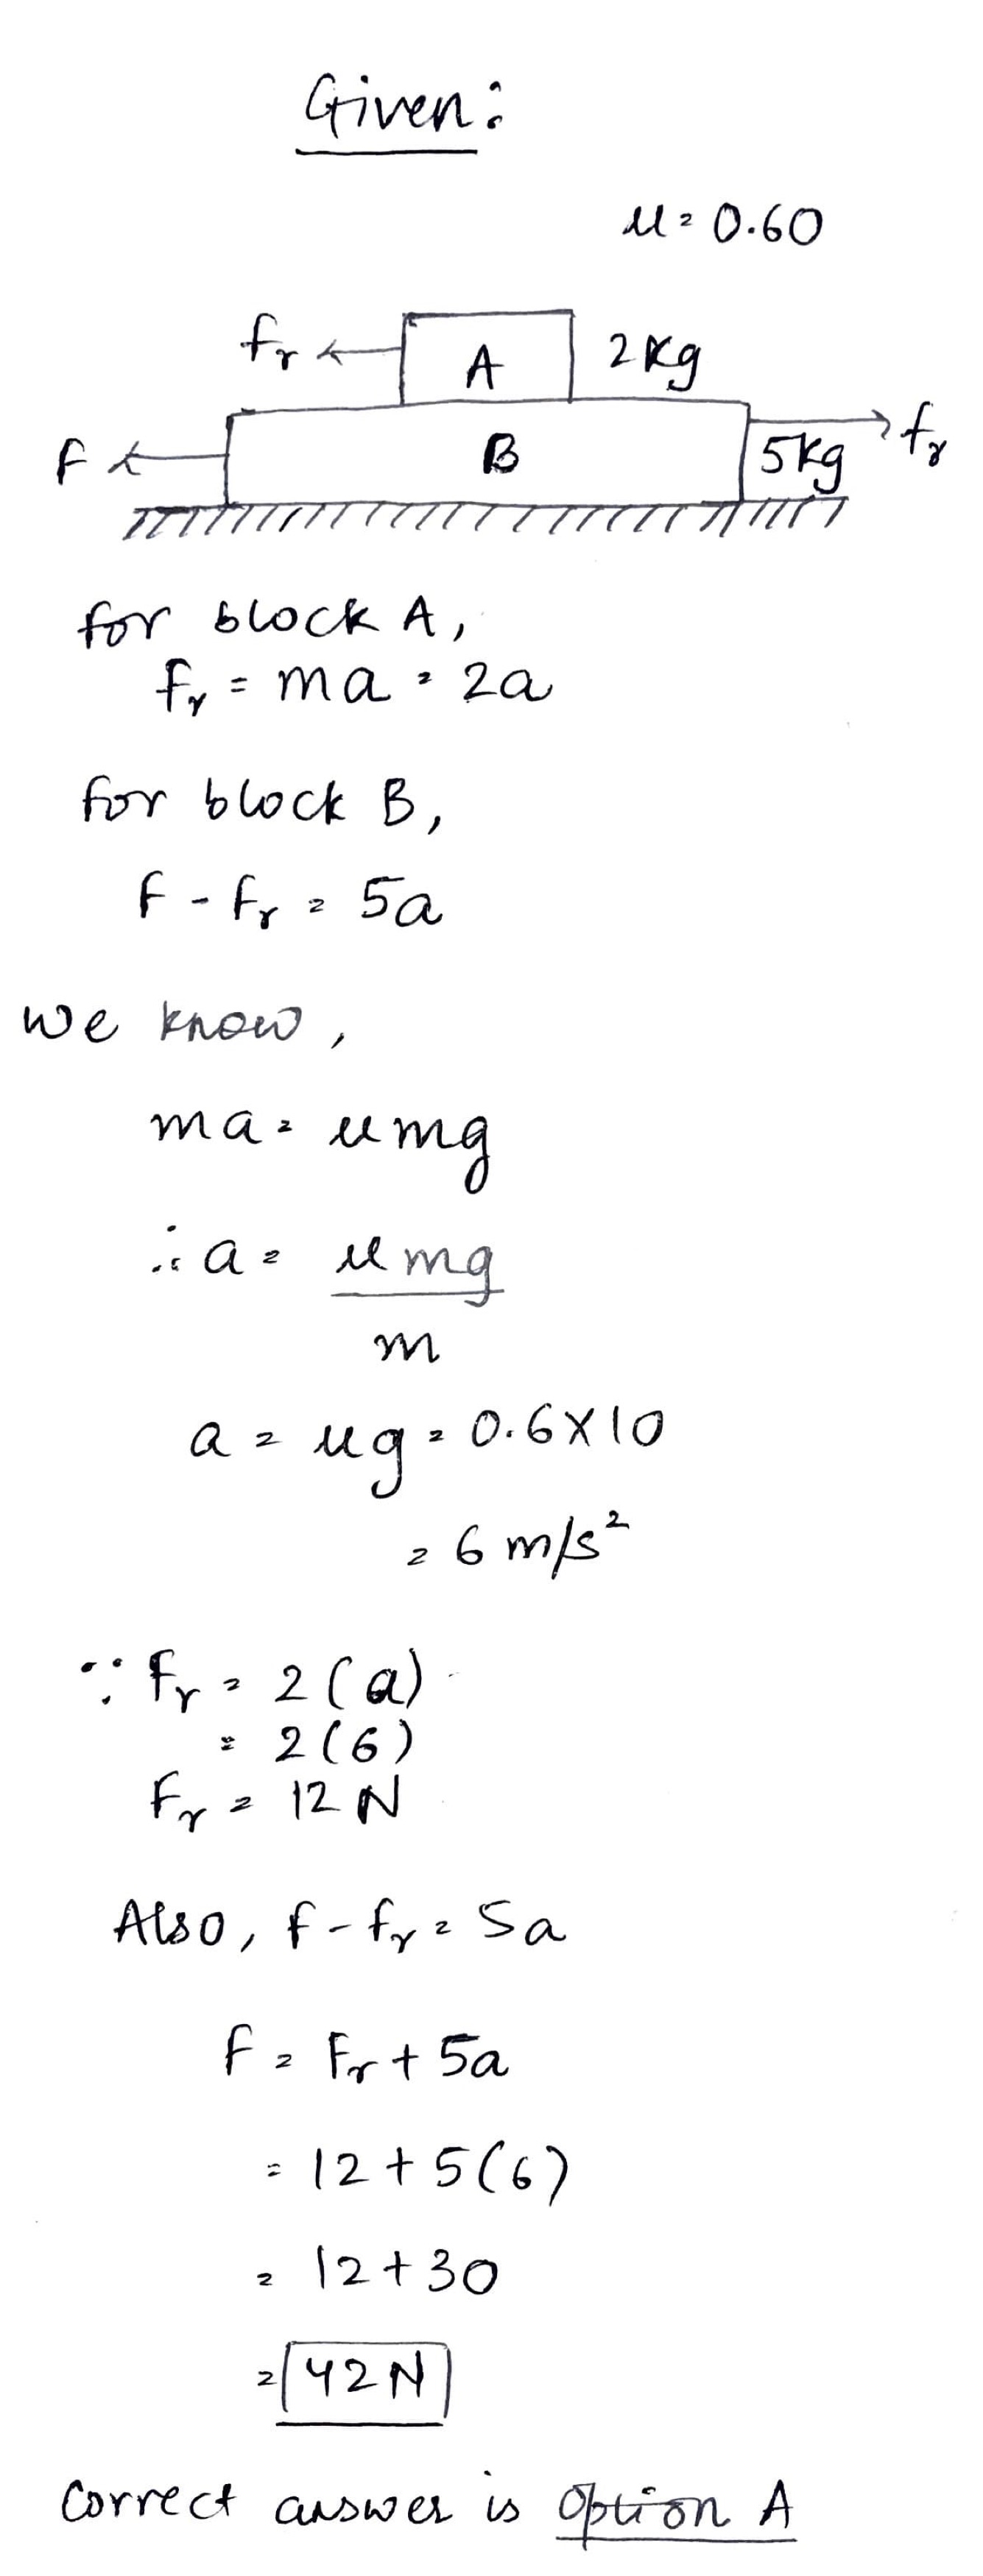 Given:
μ = 0.60
fr A 2Kg
F B 5Kg fr
for block A,
fr = ma = 2a
for block B,
F - fr = 5a
we know,
ma = μmg
∴ a = μmg
m
a = μg = 0.6×10
= 6 m/s²
∵ Fr = 2(a)
= 2(6)
Fr = 12 N
Also, f - fr = 5a
F = Fr + 5a
= 12 + 5(6)
= 12 + 30
= 42 N
Correct answer is Option A